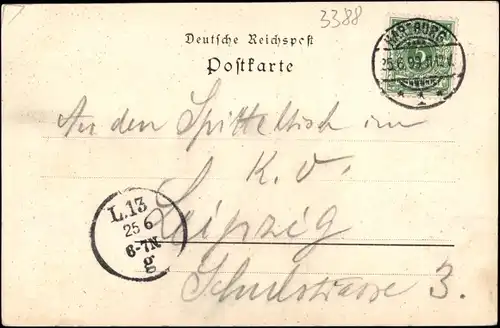 3388
Deutsche Reichspost
Postkarte
HARBURG
25.6.99. 11-12V.
* 1 *
5
An den Spitteltisch im
K. V.
Leipzig
Schulstrasse 3.
L.13
25 6
6-7N
g